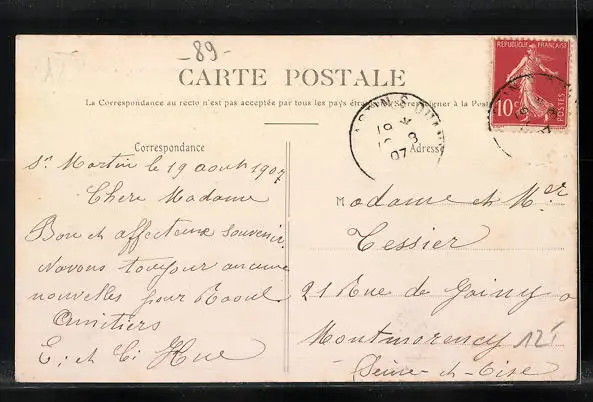 -89-
CARTE POSTALE
La Correspondance au recto n'est pas acceptée par tous les pays étrangers. Se renseigner à la Poste
RÉPUBLIQUE FRANÇAISE
10c
POSTES
19
8
07
Correspondance
Adresse
St Martin le 19 aout 1907
Chere Madame
Bon et affectueux souvenir.
Navons toujour aucune
nouvelles pour Raoul
Amitiers
E; et C; Hue
Madame et Mer
Tessier
21 Rue de Joiny a
Montmorency
Seine-et-Oise
125